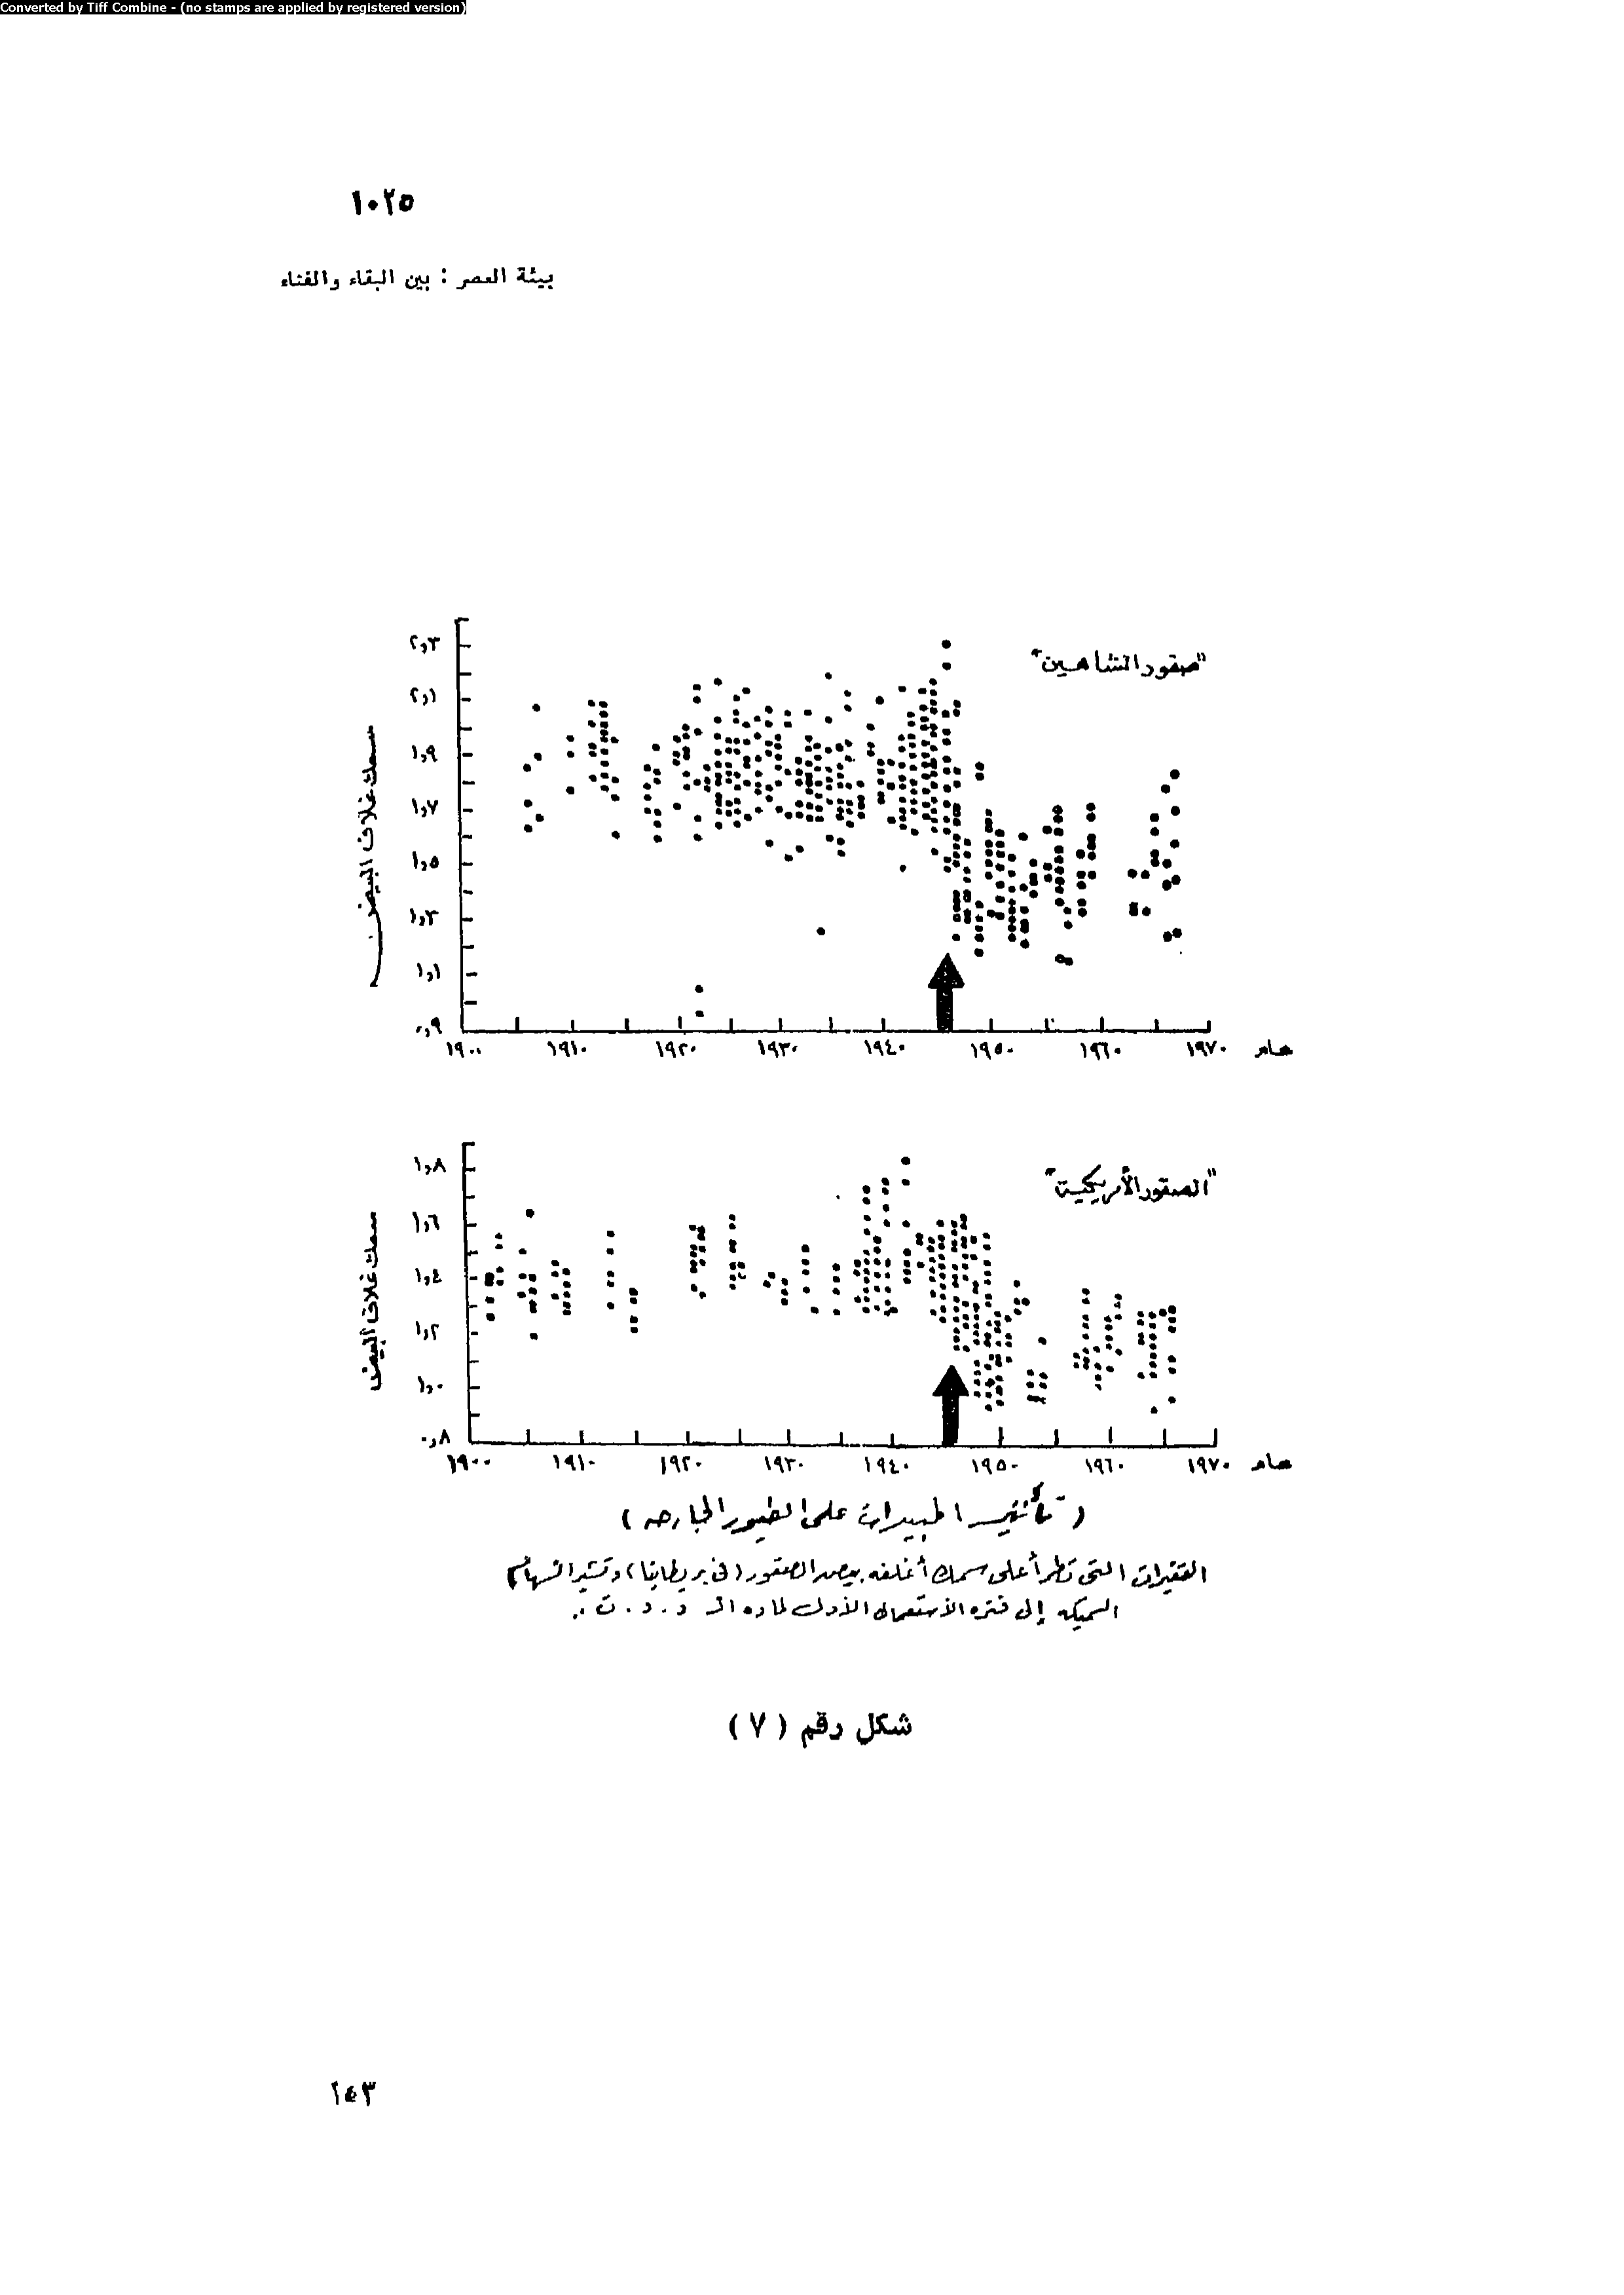 Converted by Tiff Combine - (no stamps are applied by registered version)
١٠٢٥
بيئة العصر : بين البقاء والفناء
"صقور الشاهين"
سمك غلاف البيض
٢,٣
٢,١
١,٩
١,٧
١,٥
١,٣
١,١
٠,٩
١٩٠٠ ١٩١٠ ١٩٢٠ ١٩٣٠ ١٩٤٠ ١٩٥٠ ١٩٦٠ ١٩٧٠ عام
"الصقور الأمريكية"
سمك غلاف البيض
١,٨
١,٦
١,٤
١,٢
١,٠
٠,٨
١٩٠٠ ١٩١٠ ١٩٢٠ ١٩٣٠ ١٩٤٠ ١٩٥٠ ١٩٦٠ ١٩٧٠ عام
( تأثير المبيدات على الطيور الجارحه )
التغيرات التى تطرأ على سمك أغلفه بيض الصقور (فى بريطانيا) وتشير الأسهم
السميكه إلى فتره الاستعمال الأول لماده الـ د . د . ت ..
شكل رقم ( ٧ )
١٤٣